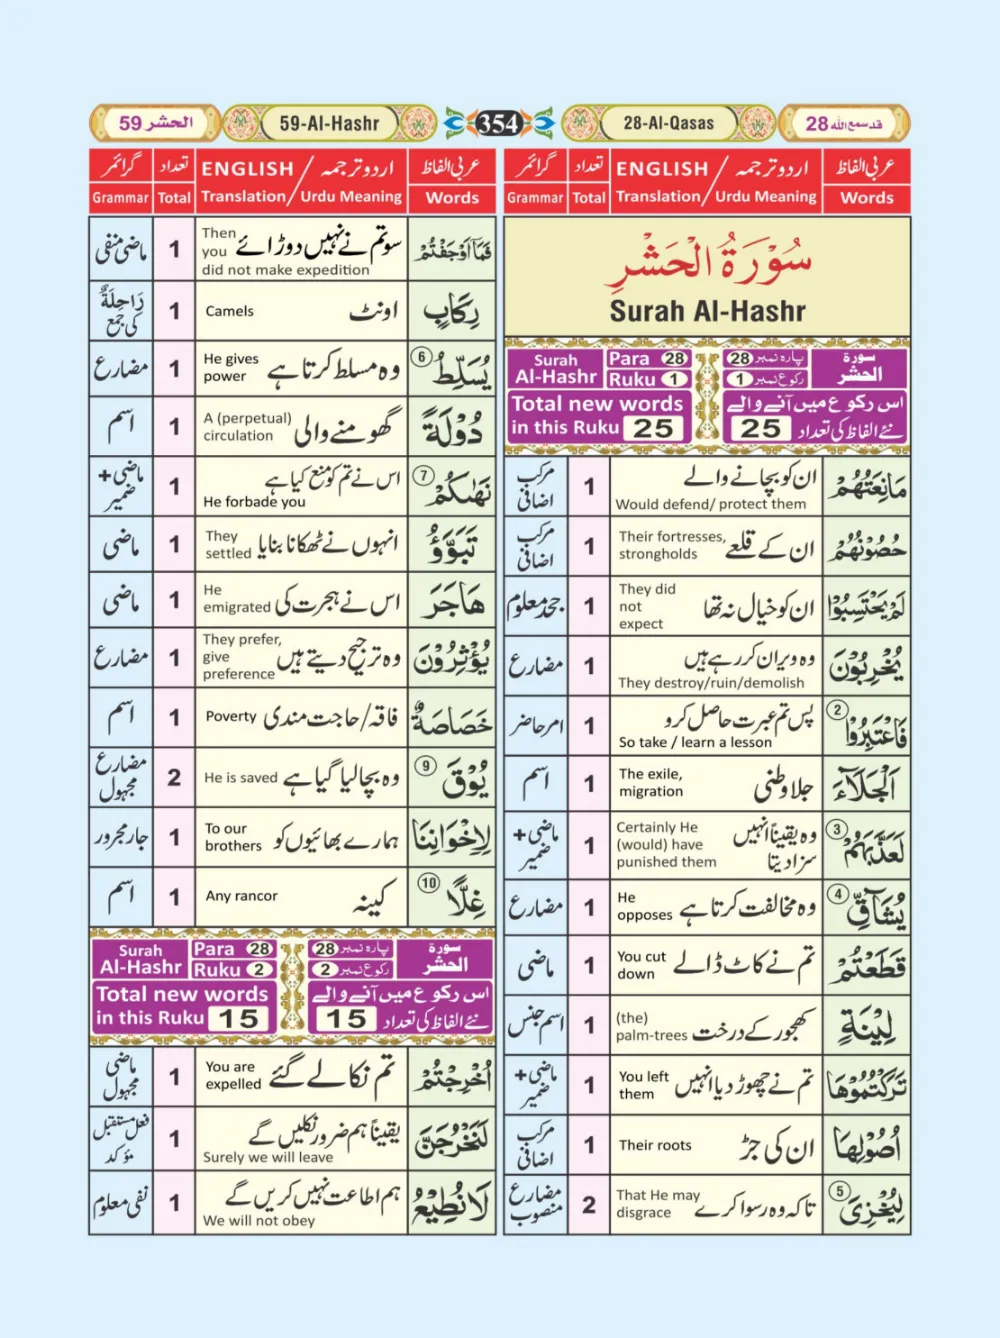 الحشر 59
59-Al-Hashr
354
28-Al-Qasas
قد سمع اللہ 28
عربی الفاظ اردو ترجمہ / ENGLISH تعداد گرائمر
Words Translation / Urdu Meaning Total Grammar
سُوْرَةُ الْحَشْرِ
Surah Al-Hashr
Surah Al-Hashr Para 28 Ruku 1
سورۃ الحشر پارہ نمبر 28 رکوع نمبر 1
Total new words in this Ruku 25
اس رکوع میں آنے والے نئے الفاظ کی تعداد 25
مَانِعَتُهُمْ ان کو بچانے والے 1 مرکب اضافی
Would defend/ protect them
حُصُوْنُهُمْ ان کے قلعے Their fortresses, strongholds 1 مرکب اضافی
لَمْ يَحْتَسِبُوْا ان کو خیال نہ تھا They did not expect 1 جحد معلوم
يُخْرِبُوْنَ وہ ویران کر رہے ہیں 1 مضارع
They destroy/ruin/demolish
فَاعْتَبِرُوْا ② پس تم عبرت حاصل کرو 1 امر حاضر
So take / learn a lesson
اَلْجَلَآءَ جلا وطنی The exile, migration 1 اسم
لَعَذَّبَهُمْ ③ وہ یقیناً انہیں سزا دیتا Certainly He (would) have punished them 1 ماضی + ضمیر
يُشَآقِّ ④ وہ مخالفت کرتا ہے He opposes 1 مضارع
قَطَعْتُمْ تم نے کاٹ ڈالے You cut down 1 ماضی
لِيْنَةٍ کھجور کے درخت (the) palm-trees 1 اسم جنس
تَرَكْتُمُوْهَا تم نے چھوڑ دیا انہیں You left them 1 ماضی + ضمیر
اُصُوْلِهَا ان کی جڑ Their roots 1 مرکب اضافی
لِيُخْزِىَ ⑤ تاکہ وہ رسوا کرے That He may disgrace 2 مضارع منصوب
عربی الفاظ اردو ترجمہ / ENGLISH تعداد گرائمر
Words Translation / Urdu Meaning Total Grammar
فَمَآ اَوْجَفْتُمْ سو تم نے نہیں دوڑائے Then you did not make expedition 1 ماضی منفی
رِكَابٍ اونٹ Camels 1 رَاحِلَةٌ کی جمع
يُسَلِّطُ ⑥ وہ مسلط کرتا ہے He gives power 1 مضارع
دُوْلَةً گھومنے والی A (perpetual) circulation 1 اسم
نَهٰىكُمْ ⑦ اس نے تم کو منع کیا ہے 1 ماضی + ضمیر
He forbade you
تَبَوَّؤُ انہوں نے ٹھکانا بنایا They settled 1 ماضی
هَاجَرَ اس نے ہجرت کی He emigrated 1 ماضی
يُؤْثِرُوْنَ وہ ترجیح دیتے ہیں They prefer, give preference 1 مضارع
خَصَاصَةٌ فاقہ/حاجت مندی Poverty 1 اسم
يُوْقَ ⑨ وہ بچا لیا گیا ہے He is saved 2 مضارع مجہول
لِاِخْوَانِنَا ہمارے بھائیوں کو To our brothers 1 جار مجرور
غِلًّا ⑩ کینہ Any rancor 1 اسم
Surah Al-Hashr Para 28 Ruku 2
سورۃ الحشر پارہ نمبر 28 رکوع نمبر 2
Total new words in this Ruku 15
اس رکوع میں آنے والے نئے الفاظ کی تعداد 15
اُخْرِجْتُمْ تم نکالے گئے You are expelled 1 ماضی مجہول
لَنَخْرُجَنَّ یقیناً ہم ضرور نکلیں گے 1 فعل مستقبل مؤکد
Surely we will leave
لَا نُطِيْعُ ہم اطاعت نہیں کریں گے 1 نفی معلوم
We will not obey